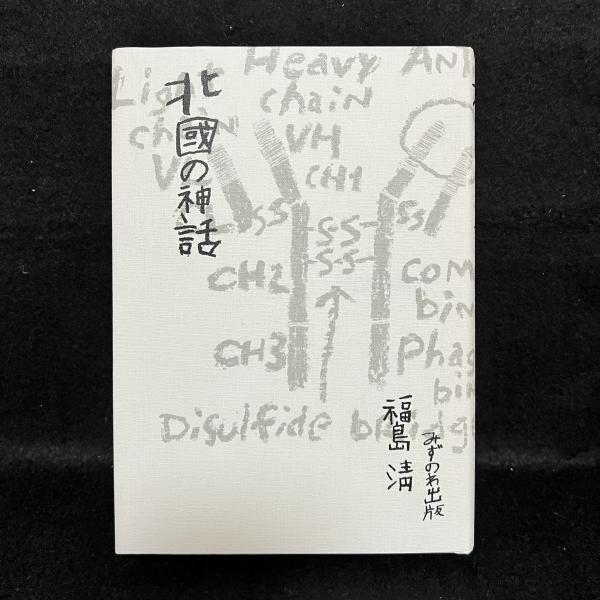 北國の神話
Light Heavy
chain chain
VH
CH1
SS -S-S- SS
-S-S-
CH2
CH3
Disulfide bridg
com
bin
Phag
bin
福島 清
みずのわ出版